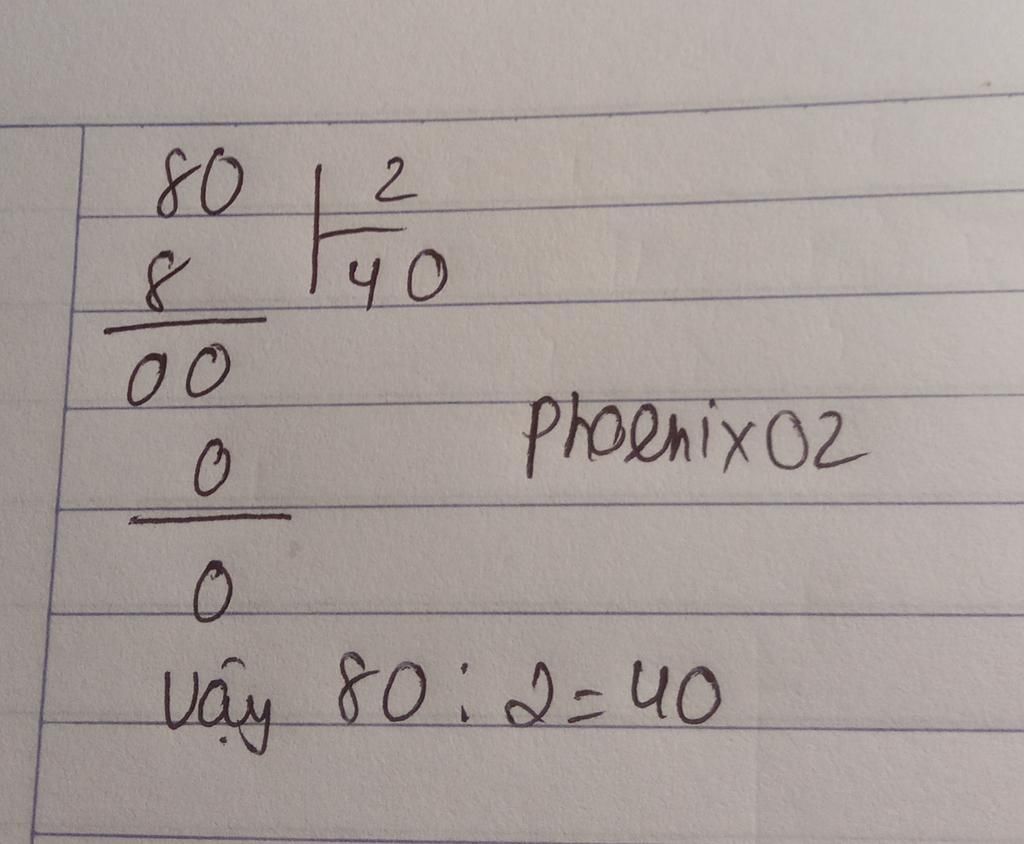 80 2
8 40
00
phoenix02
0
0
Vậy 80 : 2 = 40